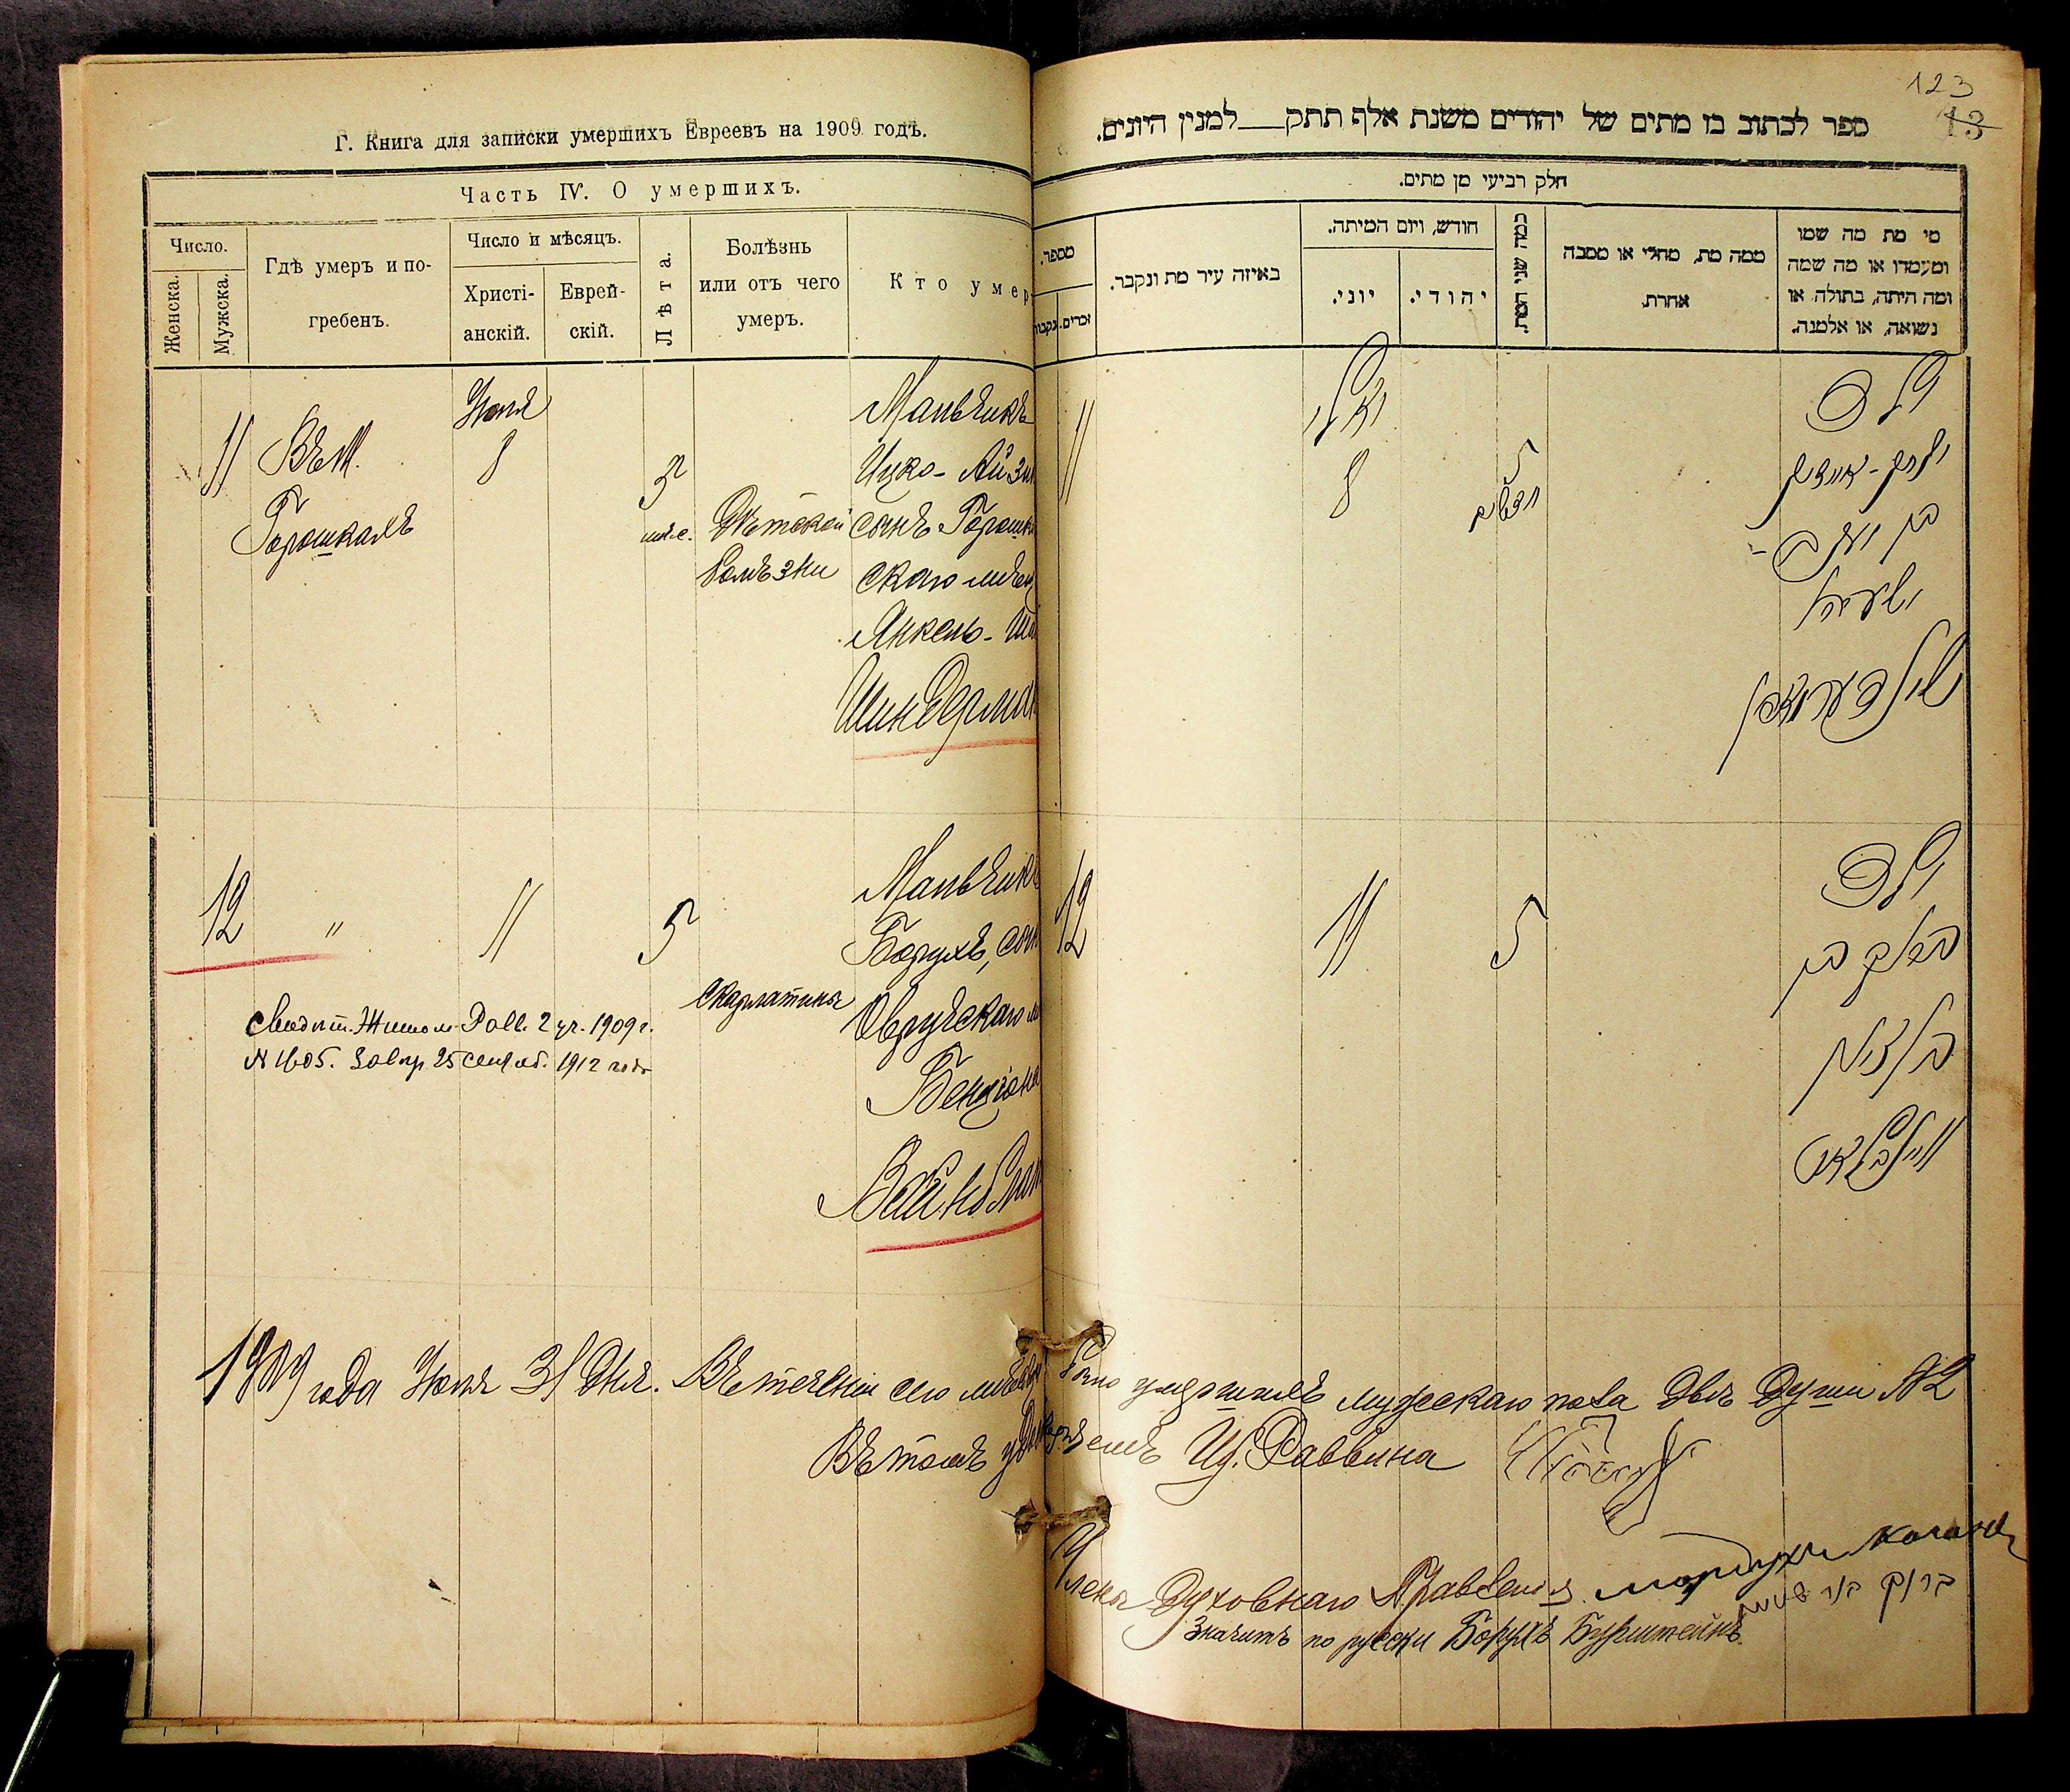 Г. Книга для записки умершихъ Евреевъ на 1909 годъ.
Часть IV. О умершихъ.
Число.
Женска.
Мужска.
Гдѣ умеръ и по-
гребенъ.
Число и мѣсяцъ.
Христі-
анскій.
Еврей-
скій.
Лѣта.
Болѣзнь
или отъ чего
умеръ.
Кто умер
11
Въ М.
Горошкахъ
Юля
8
5
мѣс.
Дѣтской
болѣзни
Мальчикъ
Ицко-Айзи
сынъ Горошк
скаго мѣщ
Янкель-Ш
Шиндерман
12
"
11
5
Скарлатина
Мальчикъ
Борухъ, сын
Овручскаго м
Бенціона
Вайнблат
Свидѣт. Житом. Равв. 2 уч. 1909 г.
N 1605. 25 Сентяб. 1912 года
123
13
ספר לכתוב בו מתים של יהודים משנת אלף תתק___למנין היונים.
חלק רביעי מן מתים.
מספר.
זכרים.
נקבות
באיזה עיר מת ונקבר.
חודש, ויום המיתה.
יוני.
יהודי.
כמה שני המת.
ממה מת, מחלי או מסבה
אחרת.
מי מת מה שמו
ומעמדו או מה שמה
ומה היתה, בתולה או
נשואה, או אלמנה.
11
יולי
8
5
ילד
יצחק-אייזיק
בן יעקב-
12
11
5
ילד
ברוך בן
בן ציון
וויינבלאט
1909 года Юля 31 дня. Въ теченіи сего мѣсяца было умершихъ мужескаго пола двѣ души N 2
Въ томъ удостовѣряемъ И. д. Раввина
Члена Духовнаго Правленія Мордухъ Коганъ
ברוך
Значитъ по русски Борухъ Бурштейнъ.